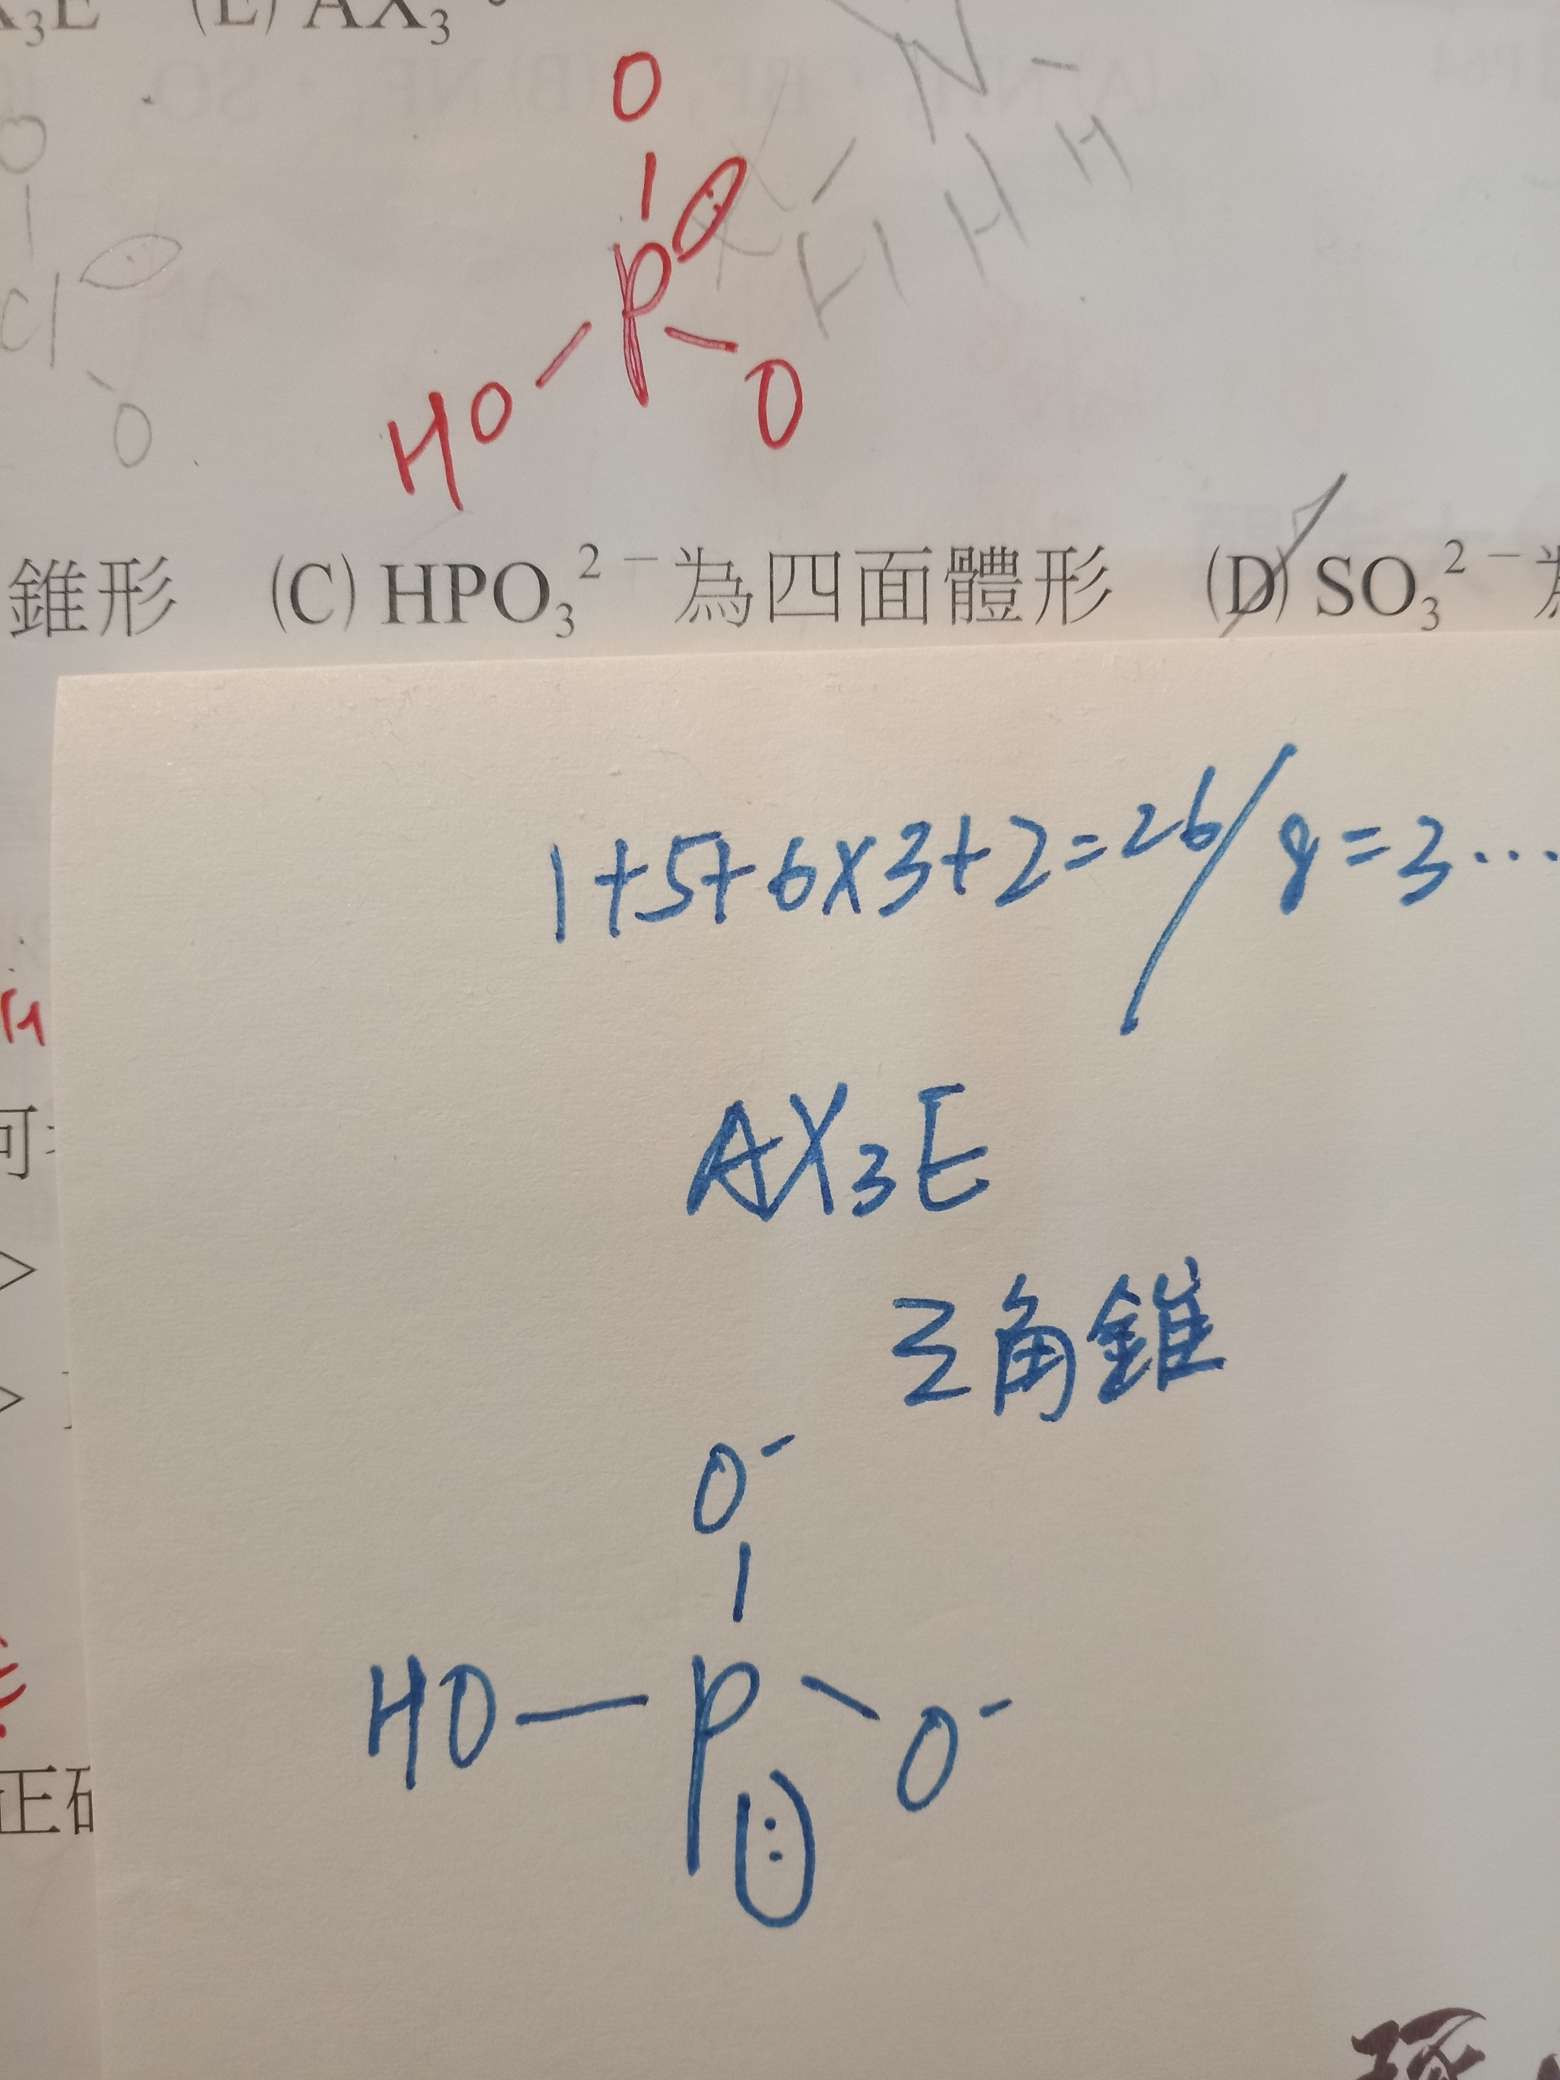 X₃E (E) AX₃。
O
N
O
P
H H H
O
Cl
O
HO
O
錐形 (C) HPO₃²⁻為四面體形 (D) SO₃²⁻為
1+5+6×3+2=26/8=3...
AX₃E
三角錐
O⁻
HO—P
O⁻
正確